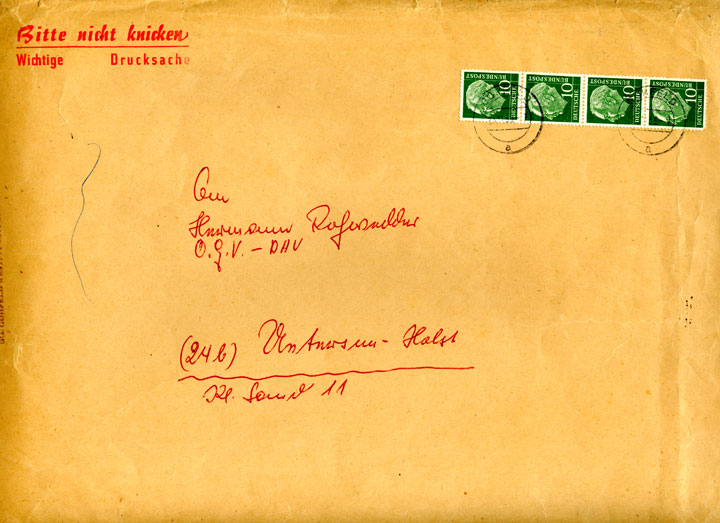 Bitte nicht knicken
Wichtige Drucksache
10 DEUTSCHE BUNDESPOST
10 DEUTSCHE BUNDESPOST
10 DEUTSCHE BUNDESPOST
10 DEUTSCHE BUNDESPOST
a
a
An
Hermann
O.G.V. - DAV
(24b) - Holst
Kl. Sand 11